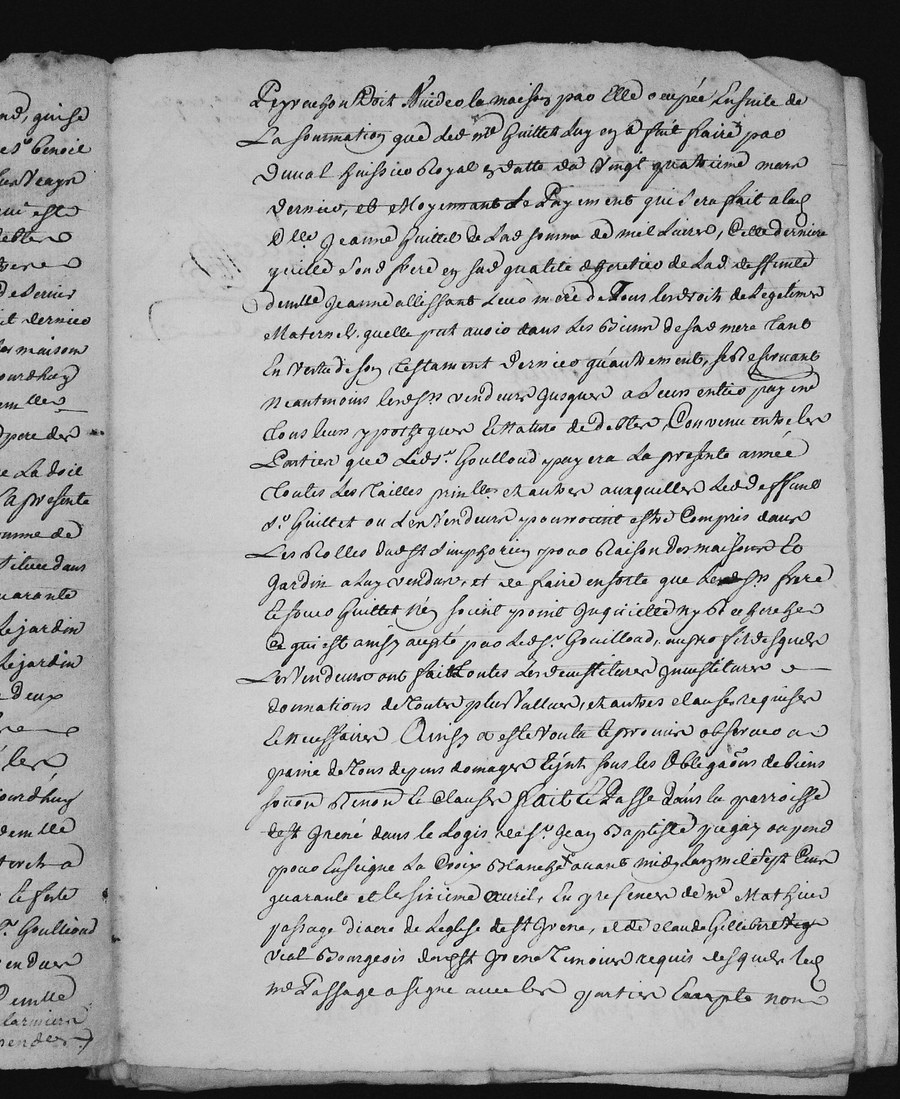 Peyrachon Doit Vuider la maison par Elle occupée Ensuite de
La sommation que led. me Guillet Luy en a fait faire par
Duval huissier Royal en datte du Vingt quatrieme mars
dernier, et Moyennant Le Payement qui sera fait a lad
Dlle Jeanne Guillet de Lad somme de mil Livres, Celle derniere
quitte Sond frere en sad qualité de heritier de Lad. deffunte
demlle Jeanne allissant Leur mere de Tous les droits de Legitime
Maternel quelle peut avoir dans Les Biens de sad mere tant
En Vertu de son testament dernier qu'autrement, se Reservant
Neantmoins lesd. srs vendeurs Jusques a Leur entier payemt
tous leurs ypotheques Et Nature de debtes, Convenu entre les
Parties que Led sr. Goulloud payera La presente année
toutes Les tailles et autres auxquelles Led deffunt
sr. Guillet ou Les Vendeurs pourroient estre Compris dans
Les Rolles dud st Simphorien pour Raison des maisons Et
Jardin a luy vendus, et de faire ensorte que Lesd srs frere
Et soeur Guillet N'en soient point Inquiettés ny Recherchés
Ce qui est ainsy accepté par Led sr. Goulloud, au profit desquels
Les Vendeurs ont fait toutes Les devestitures Investitures
donnations de toutes plus Vallues, et autres clauses requises
Et Necessaires Ainsy a esté Voulu Et promis observer a
paine de tous depens domages Et jnts sous les Obligaons de biens
Renon Et Clauses fait Et Passé Dans la parroisse
de st Grené dans le Logis de sr. Jean Baptiste ou pend
pour Enseigne La Croix Blanche avant midy Lan mil sept Cent
quarante et le sixieme avril, En presence de me Mathieu
passage diacre de Leglise de st Grené, et de claude
vial Bourgeois dud st Grené temoins requis desquels led
me Passage a signé avec les parties Excepté non